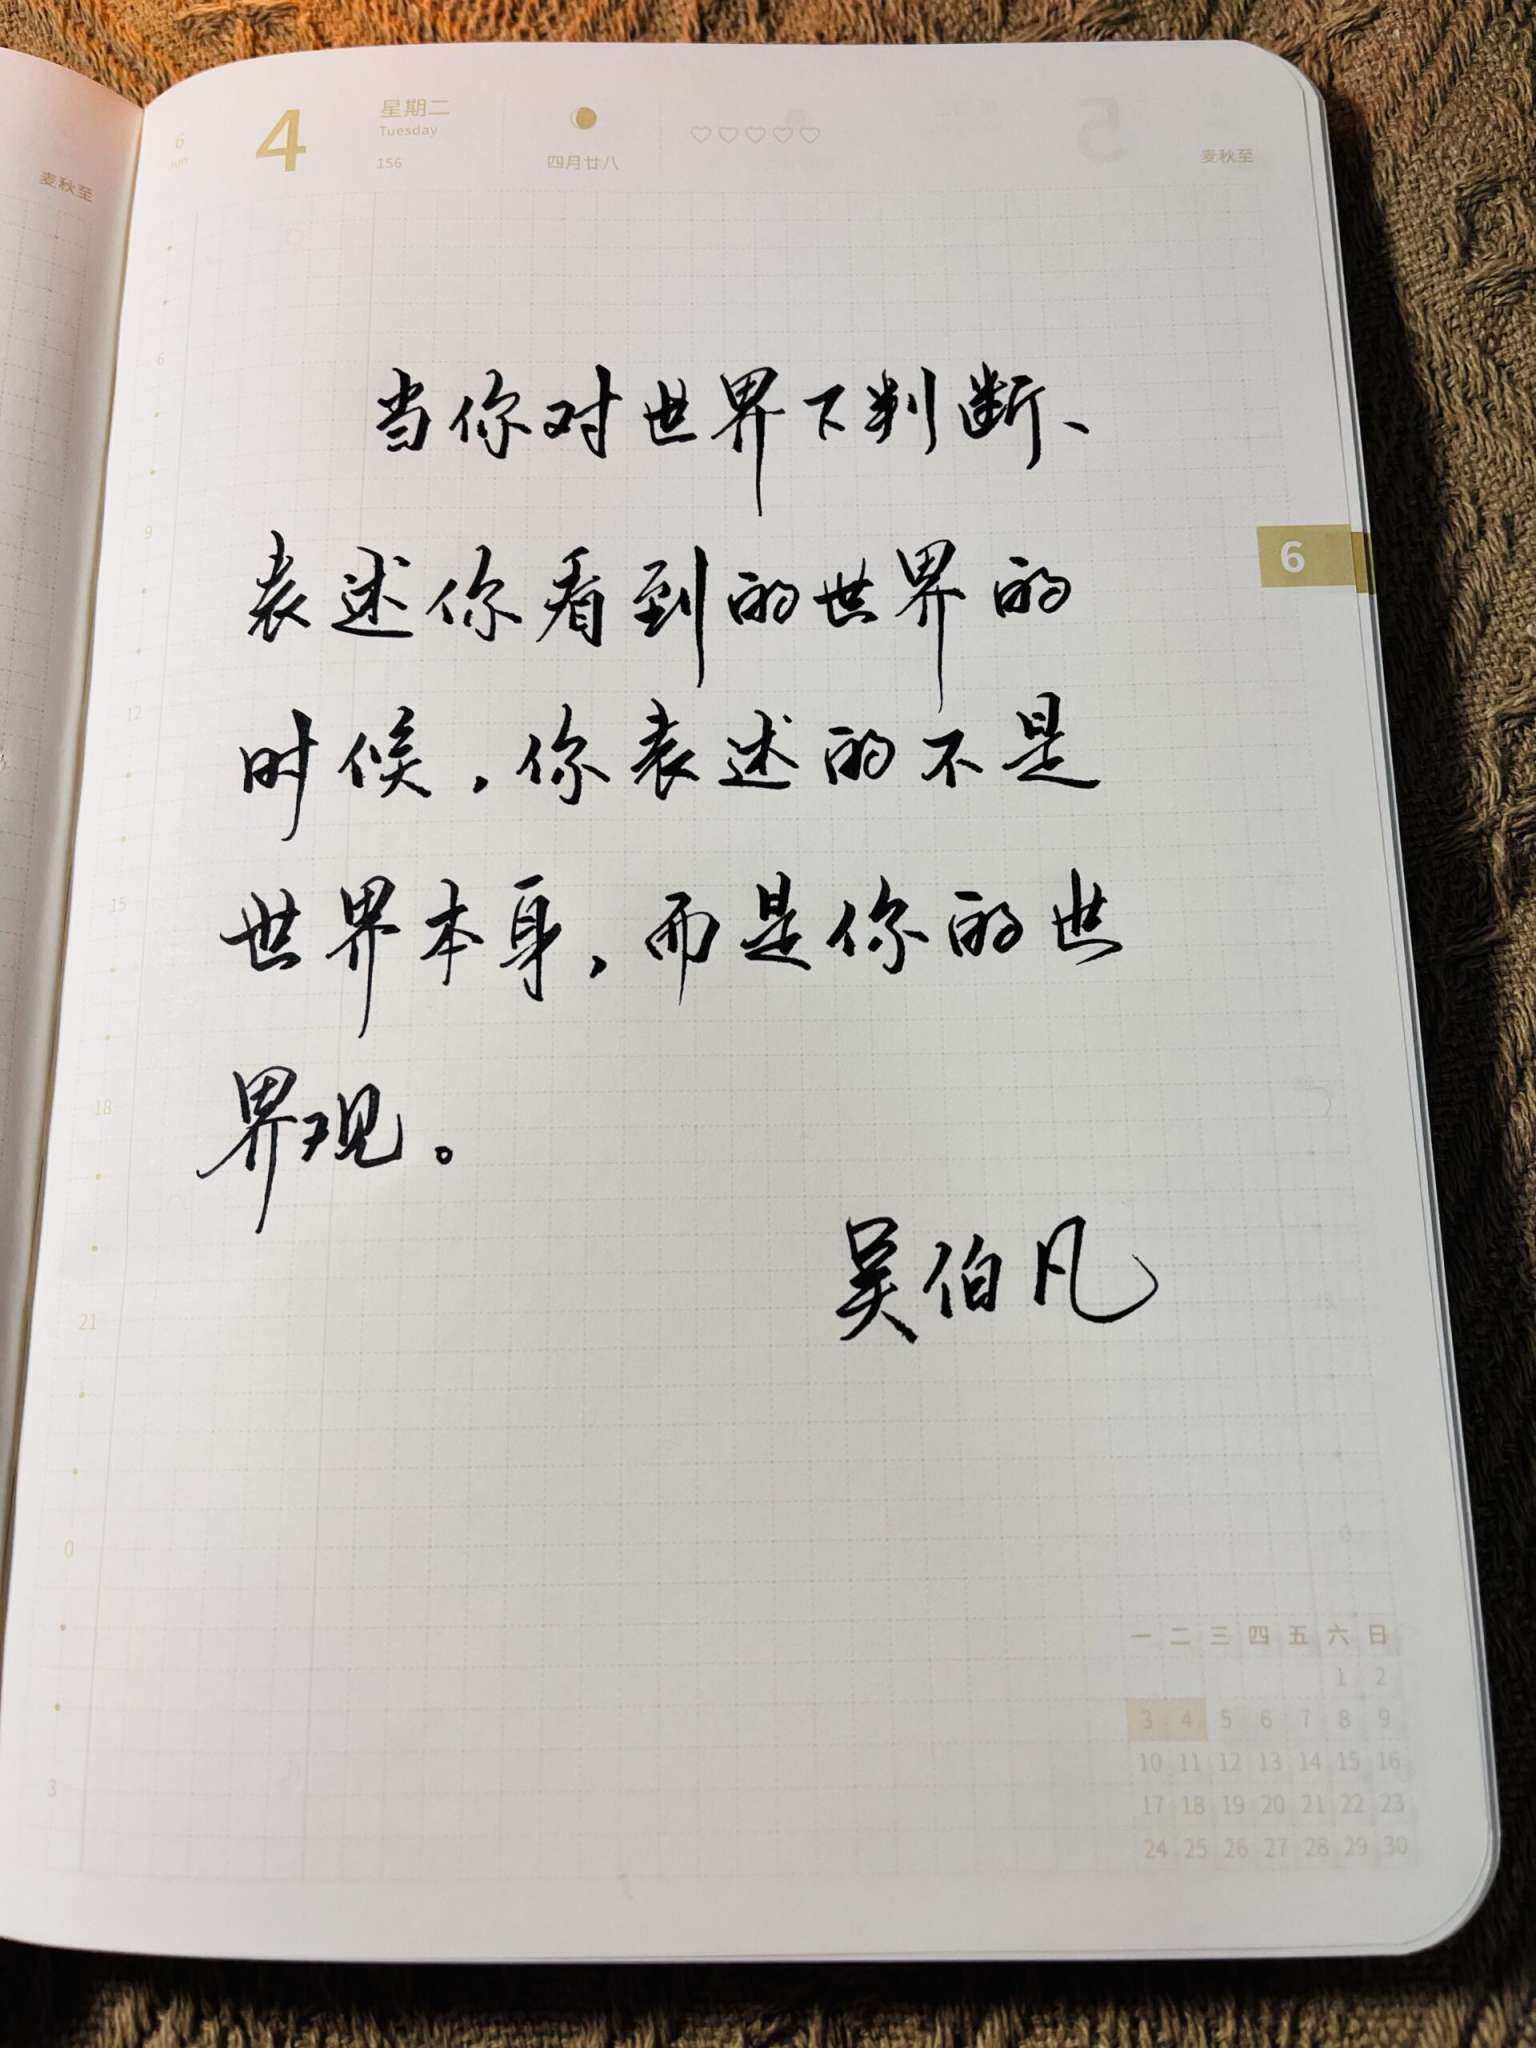 6
Jun
4
星期二
Tuesday
156
四月廿八
麦秋至
麦秋至
当你对世界下判断、
表述你看到的世界的
时候，你表述的不是
世界本身，而是你的世
界观。
吴伯凡
6
6
9
12
15
18
21
0
3
一 二 三 四 五 六 日
1 2
3 4 5 6 7 8 9
10 11 12 13 14 15 16
17 18 19 20 21 22 23
24 25 26 27 28 29 30